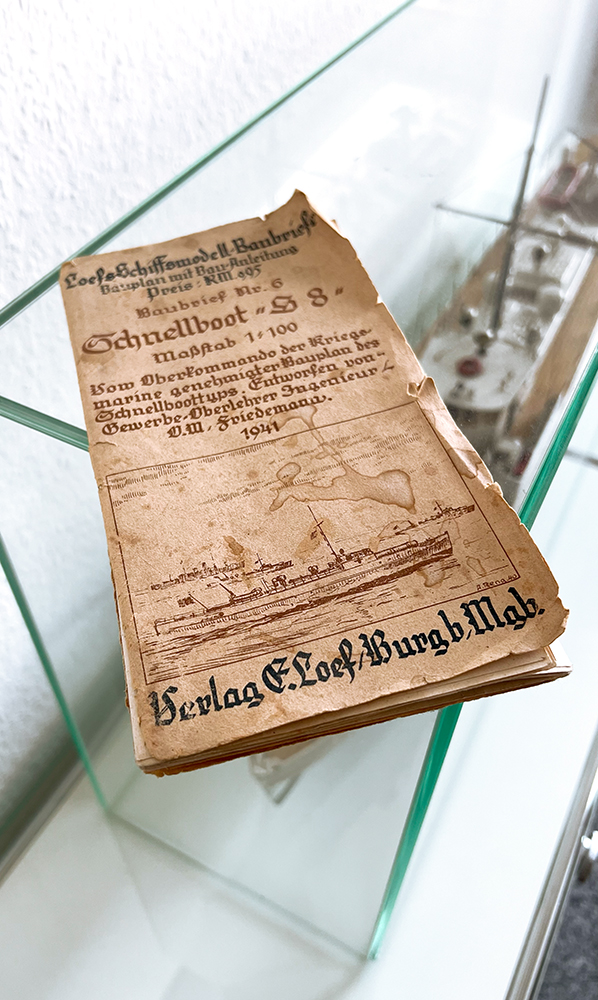 Loef's Schiffsmodell-Baubriefe
Bauplan mit Bau-Anleitung
Preis: RM. 0,95
Baubrief Nr. 6
Schnellboot „S 8“
Maßstab 1:100
Vom Oberkommando der Kriegs-
marine genehmigter Bauplan des
Schnellboottyps. Entworfen von
Gewerbe-Oberlehrer Ingenieur
O.M. Friedemann.
1941
Verlag E. Loef, Burg b. Mgb.